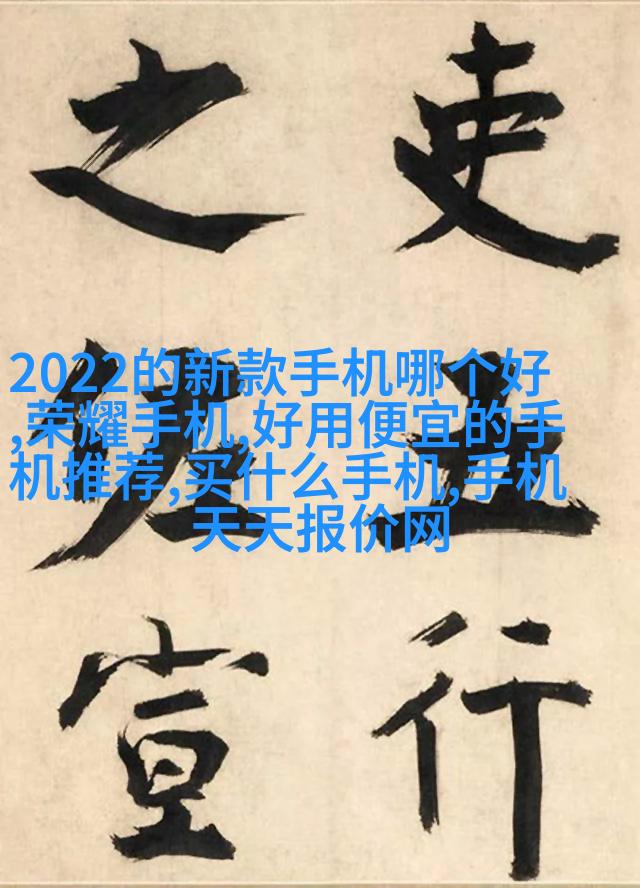 吏
行
之
宣
2022的新款手机哪个好
,荣耀手机,好用便宜的手
机推荐,买什么手机,手机
天天报价网